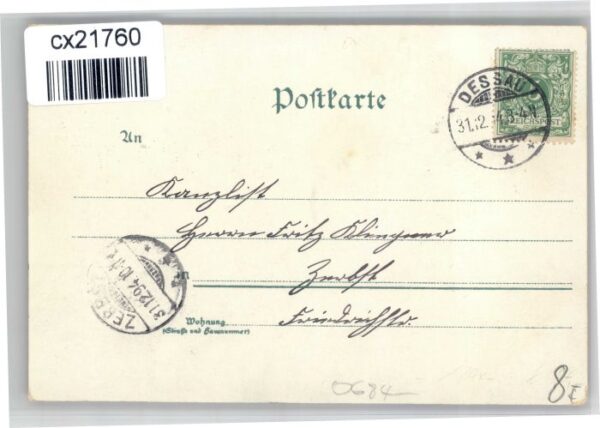 cx21760
Postkarte
DESSAU
31.12. 94. 3-4 N
REICHSPOST
An
Kanzlist
Herrn Fritz Klingner
Zerbst
ZERBST
31.12.94
Wohnung
(Straße und Hausnummer)
Friedrichstr.
0684
8